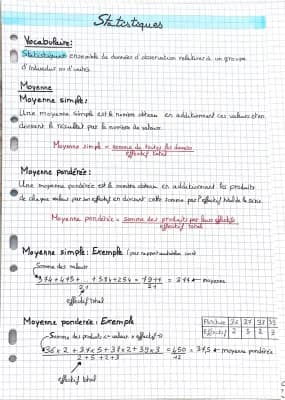 Statistiques
Vocabulaire:
Statistiques: ensemble de données d'observation relatives à un groupe
d'individus ou d'unités.
Moyenne
Moyenne simple:
Une moyenne simple est le nombre obtenu en additionnant ces valeurs et en
divisant le résultat par le nombre de valeurs.
Moyenne simple = somme de toutes les données
effectif total
Moyenne pondérée:
Une moyenne pondérée est le nombre obtenu en additionnant les produits
de chaque valeur par son effectif en divisant cette somme par l'effectif total de la série.
Moyenne pondérée = somme des produits par leurs effectifs
effectif total
Moyenne simple: Exemple (par rapport
Somme des valeurs
374+475+ +594+254 = 7911 = 377 ← moyenne
21 21
effectif total
Moyenne pondérée: Exemple
Pointure 36 37 38 39
Effectif 2 5 2 3
Somme des produits ← valeur × effectif
36×2 + 37×5 + 38×2 + 39×3 = 450 = 37,5 ← moyenne pondérée
2+5+2+3 12
effectif total